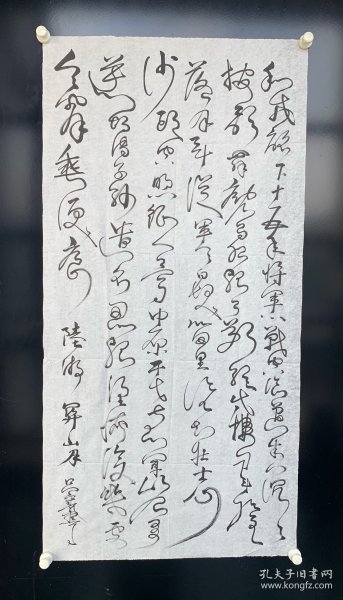 和戎詔下十五年將軍不戰空臨邊朱門沉沉
按歌舞廄馬肥死弓斷弦戍樓刁斗催
落月三十從軍今白髮笛里誰知壯士心
沙頭空照征人骨中原干戈古亦聞豈有
逆胡傳子孫遺民忍死望恢復幾處
今宵垂淚痕 陸游 關山月
孔夫子旧书网
www.kongfz.com